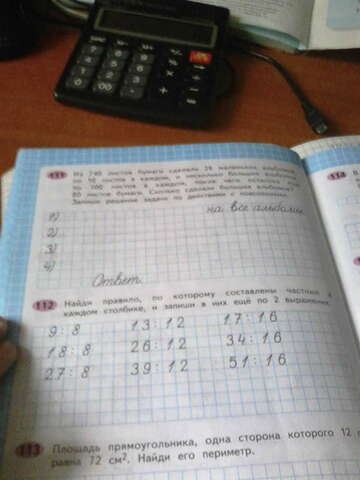 111 Из 740 листов бумаги сделали 24 маленьких альбома
по 10 листов в каждом, и несколько больших альбомов
по 100 листов в каждом, после чего осталось
80 листов бумаги. Сколько сделали больших альбомов?
Запиши решение задачи по действиям с пояснением.
1) на все альбомы
2)
3)
4)
Ответ:
112 Найди правило, по которому составлены частные в
каждом столбике, и запиши в них ещё по 2 выражения.
9 : 8 13 : 12 17 : 16
18 : 8 26 : 12 34 : 16
27 : 8 39 : 12 51 : 16
113 Площадь прямоугольника, одна сторона которого 12
равна 72 см². Найди его периметр.
114